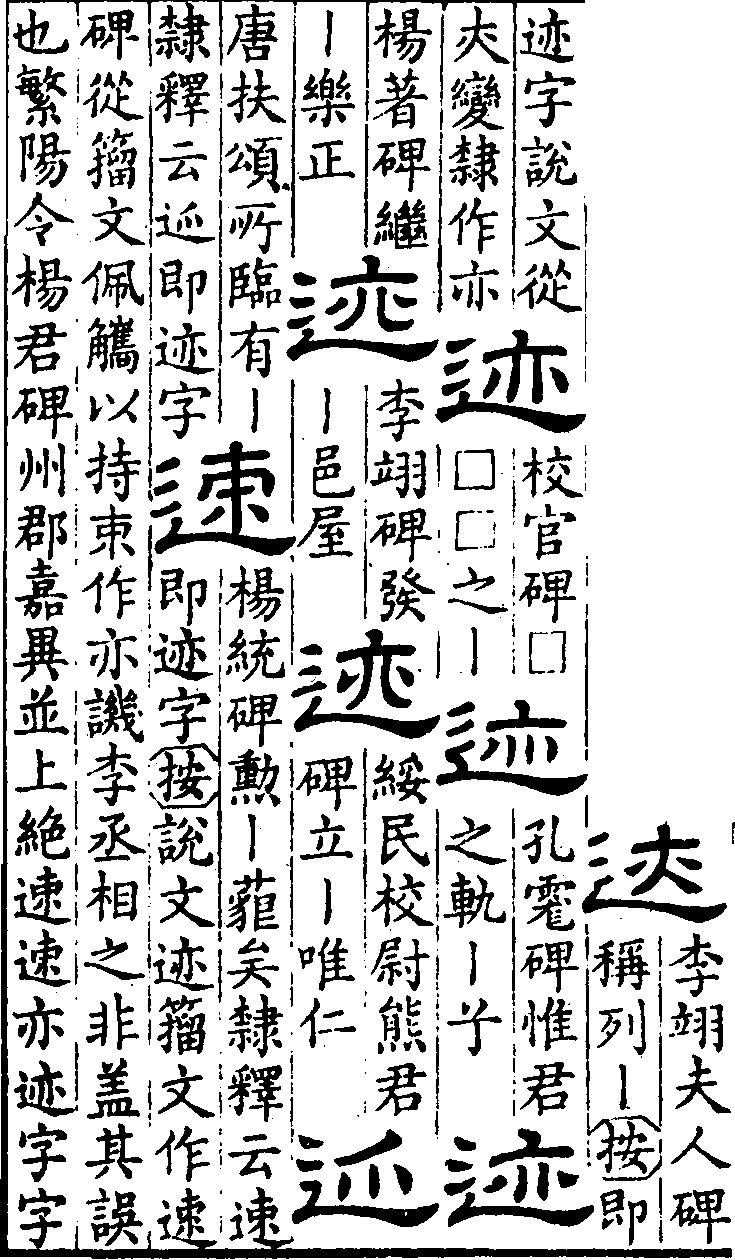 迹
李翊夫人碑
稱列丨按即
迹字說文從
亦變隸作亦
迹
校官碑□
□□之丨
迹
孔碑惟君
之軌丨兮
迹
楊著碑繼
丨樂正
迹
李翊碑發
丨邑屋
迹
綏民校尉熊君
碑立丨唯仁
迹
唐扶頌所臨有丨
隸釋云迹即迹字
速
楊統碑勲丨藐矣隸釋云速
即迹字按說文迹籀文作速
碑從籀文佩觿以持朿作亦譏李丞相之非盖其誤
也繁陽令楊君碑州郡嘉異並上絕速速亦迹字字